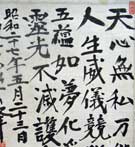 天心無私万
人生威儀競
五蘊如夢化
靈光不滅護
昭和二十七年五月二十三日